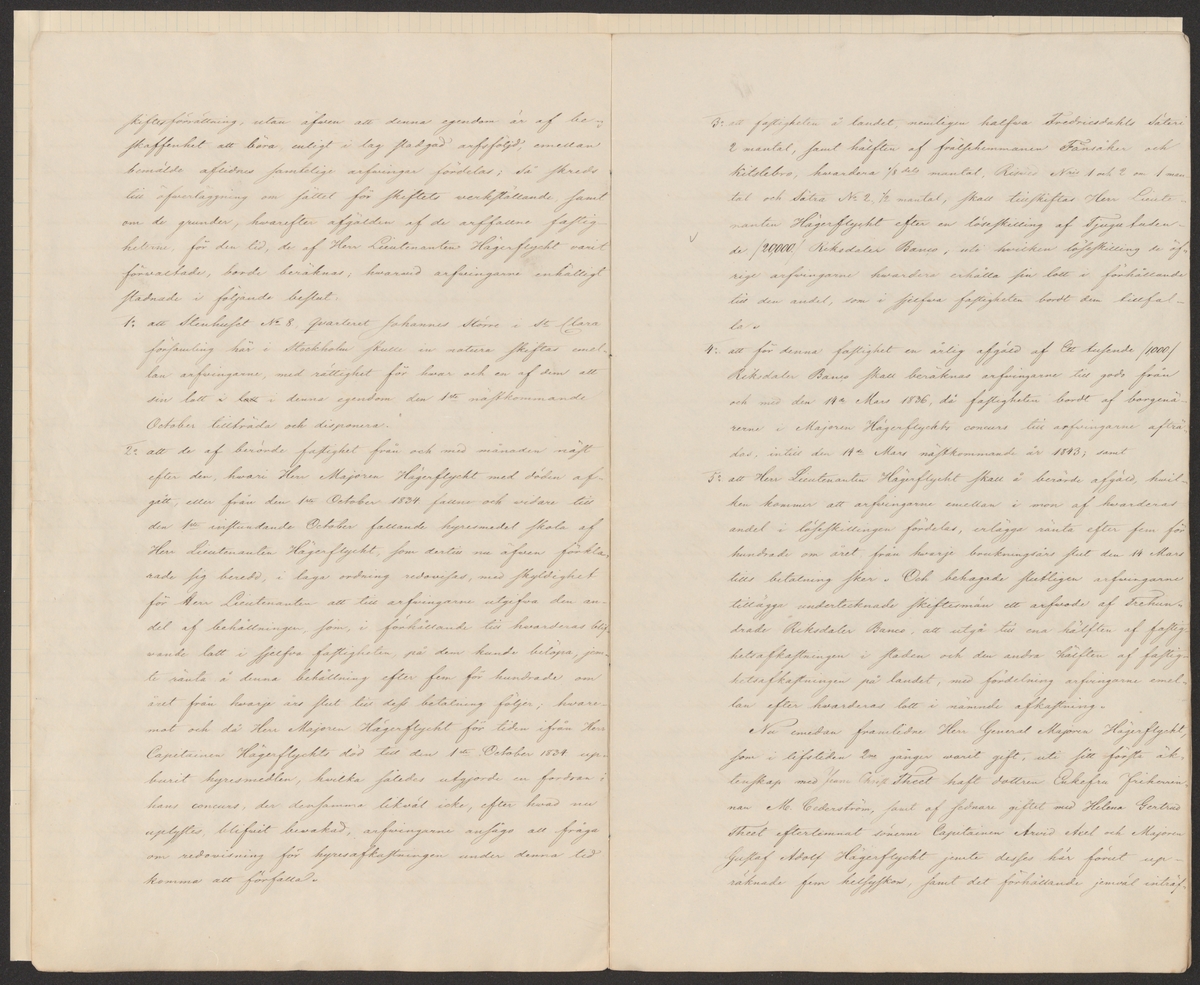 skiftesförrättning, utan äfven att denna egendom är af be-
skaffenhet att böra, enligt i lag stadgad arfsföljd, emellan
bemälde aflidnes samtelige arfvingar fördelas; så skreds
till öfverläggning om sättet för skiftets verkställande, samt
om de grunder, hvarefter afgälden af de arffallne fastig-
heterne, för den tid, de af Herr Lieutenanten Hägerflycht varit
förvaltade, borde beräknas, hvarvid arfvingarne enhälligt
stadnade i följande beslut.
1o att Stenhuset No 8, Quarteret Johannes Större i St Clara
församling här i Stockholm skulle in natura skiftas emel-
lan arfvingarne, med rättighet för hvar och en af dem att
sin lott i denna egendom den 1ste nästkommande
October tillträda och disponera.
2o att de af berörde fastighet från och med månaden näst
efter den, hvari Herr Majoren Hägerflycht med döden af-
gått, eller från den 1ste October 1834 fallne och vidare till
den 1ste instundande October fallande hyresmedel skola af
Herr Lieutenanten Hägerflycht, som dertill nu äfven förkla-
rade sig beredd, i laga ordning redovisas, med skyldighet
för Herr Lieutenanten att till arfvingarne utgifva den an-
del af behållningen, som, i förhållande till hvarderas blif-
vande lott i sjelfva fastigheten, på dem kunde belöpa, jem-
te ränta å denna behållning efter fem för hundrade om
året från hvarje års slut till dess betalning följer; hvare-
mot och då Herr Majoren Hägerflycht för tiden ifrån Herr
Capitainen Hägerflychts död till den 1ste October 1834 up-
burit hyresmedlen, hvilka således utgjorde en fordran i
hans concurs, der densamma likväl icke, efter hvad nu
uplystes, blifvit bevakad, arfvingarne ansågo all fråga
om redovisning för hyresafkastningen under denna tid
komma att förfalla.
3o att fastigheten å landet, nemligen halfva Fredricsdahls Säteri
2 mantal, samt hälften af frälsehemmanen Fånsåker och
Kitslebro, hvardera 1/8 dels mantal, Nris 1 och 2 om 1 man-
tal och Sätra No 2, 1/2 mantal, skall tillskiftas Herr Lieute-
nanten Hägerflycht efter en löseskilling af Tjugutusen-
de /20,000/ Riksdaler Banco, uti hvilken löseskilling de öf-
rige arfvingarne hvardera erhålla sin lott i förhållande
till den andel, som i sjelfva fastigheten bordt dem tillfal-
la.
4o att för denna fastighet en årlig afgäld af Ett tusende /1000/
Riksdaler Banco skall beräknas arfvingarne till godo från
och med den 14de Mars 1836, då fastigheten bordt af borgenä-
rerne i Majoren Hägerflychts concurs till arfvingarne afträ-
das, intill den 14de Mars nästkommande år 1843; samt
5o att Herr Lieutenanten Hägerflycht skall å berörde afgäld, hvil-
ken kommer att arfvingarne emellan i mon af hvarderas
andel i löseskillingen fördelas, erlägga ränta efter fem för
hundrade om året från hvarje räkningsårs slut den 14 Mars
tills betalning sker. Och behagade slutligen arfvingarne
tillägga undertecknade skiftesmän ett arfvode af Trehun-
drade Riksdaler Banco, att utgå till ena hälften af fastig-
hetsafkastningen i staden och den andra hälften af fastig-
hetsafkastningen på landet, med fördelning arfvingarne emel-
lan efter hvarderas lott i nämnde afkastning.
Nu emedan framlidne Herr General Majoren Hägerflycht,
som i lifstiden 2ne gånger varit gift, uti sitt förste äk-
tenskap med Theel haft dottren Enkefru Friherrin-
nan M. Cederström, samt af sednare giftet med Helena Gertrud
Theel efterlemnat sönerne Capitainen Arvid Axel och Majoren
Gustaf Adolf Hägerflycht jemte desses här förut up-
räknade fem helsyskon, samt det förhållande jemväl inträf-